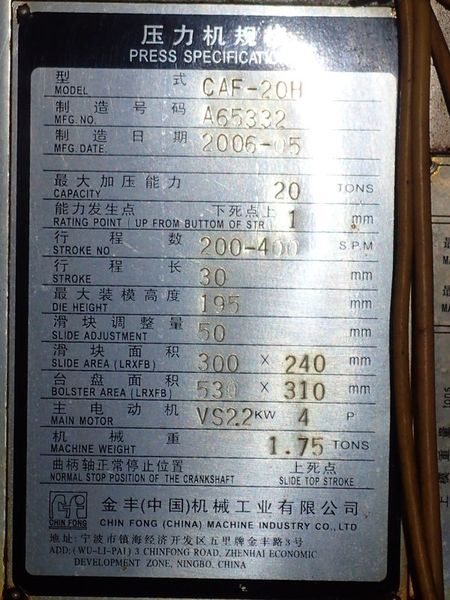 压力机规
PRESS SPECIFICATION
型 式
MODEL CAF-20H
制造号码
MFG. NO. A65332
制造日期
MFG. DATE. 2006-05
最大加压能力
CAPACITY 20 TONS
能力发生点 下死点上
RATING POINT UP FROM BUTTOM OF STR 1 mm
行程数
STROKE NO 200-400 S.P.M
行程长
STROKE 30 mm
最大装模高度
DIE HEIGHT 195 mm
滑块调整量
SLIDE ADJUSTMENT 50 mm
滑块面积
SLIDE AREA (LRXFB) 300 × 240 mm
台盘面积
BOLSTER AREA (LRXFB) 530 × 310 mm
主电动机
MAIN MOTOR VS2.2 KW 4 P
机械重
MACHINE WEIGHT 1.75 TONS
曲柄轴正常停止位置 上死点
NORMAL STOP POSITION OF THE CRANKSHAFT SLIDE TOP STROKE
CHIN FONG
金丰(中国)机械工业有限公司
CHIN FONG (CHINA) MACHINE INDUSTRY CO.,LTD
地址: 宁波市镇海经济开发区五里牌金丰路3号
ADD: (WU-LI-PAI) 3 CHINFONG ROAD, ZHENHAI ECONOMIC
DEVELOPMENT ZONE, NINGBO, CHINA